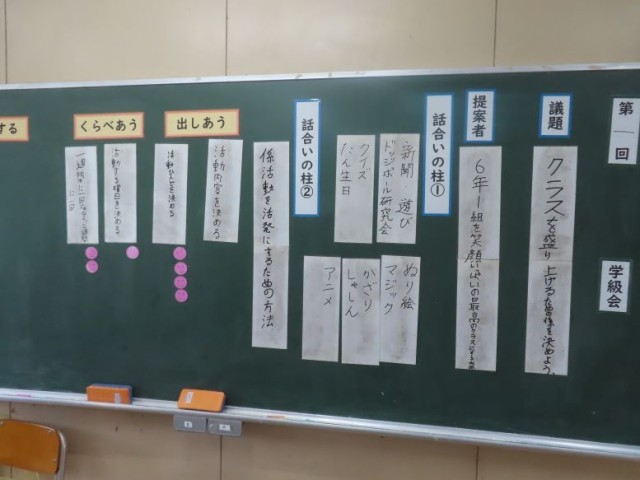 第一回
学級会
議題
クラスを盛り上げるため係を決めよう。
提案者
6年1組を笑顔いっぱいの最高のクラスにするため
話合いの柱①
新聞 遊び
ドッジボール研究会
クイズ
たん生日
ぬり絵
マジック
かざり
しゃしん
アニメ
話合いの柱②
係活動を活発にするための方法
出しあう
活動内容を決める
くらべあう
活動する曜日を決める。
する